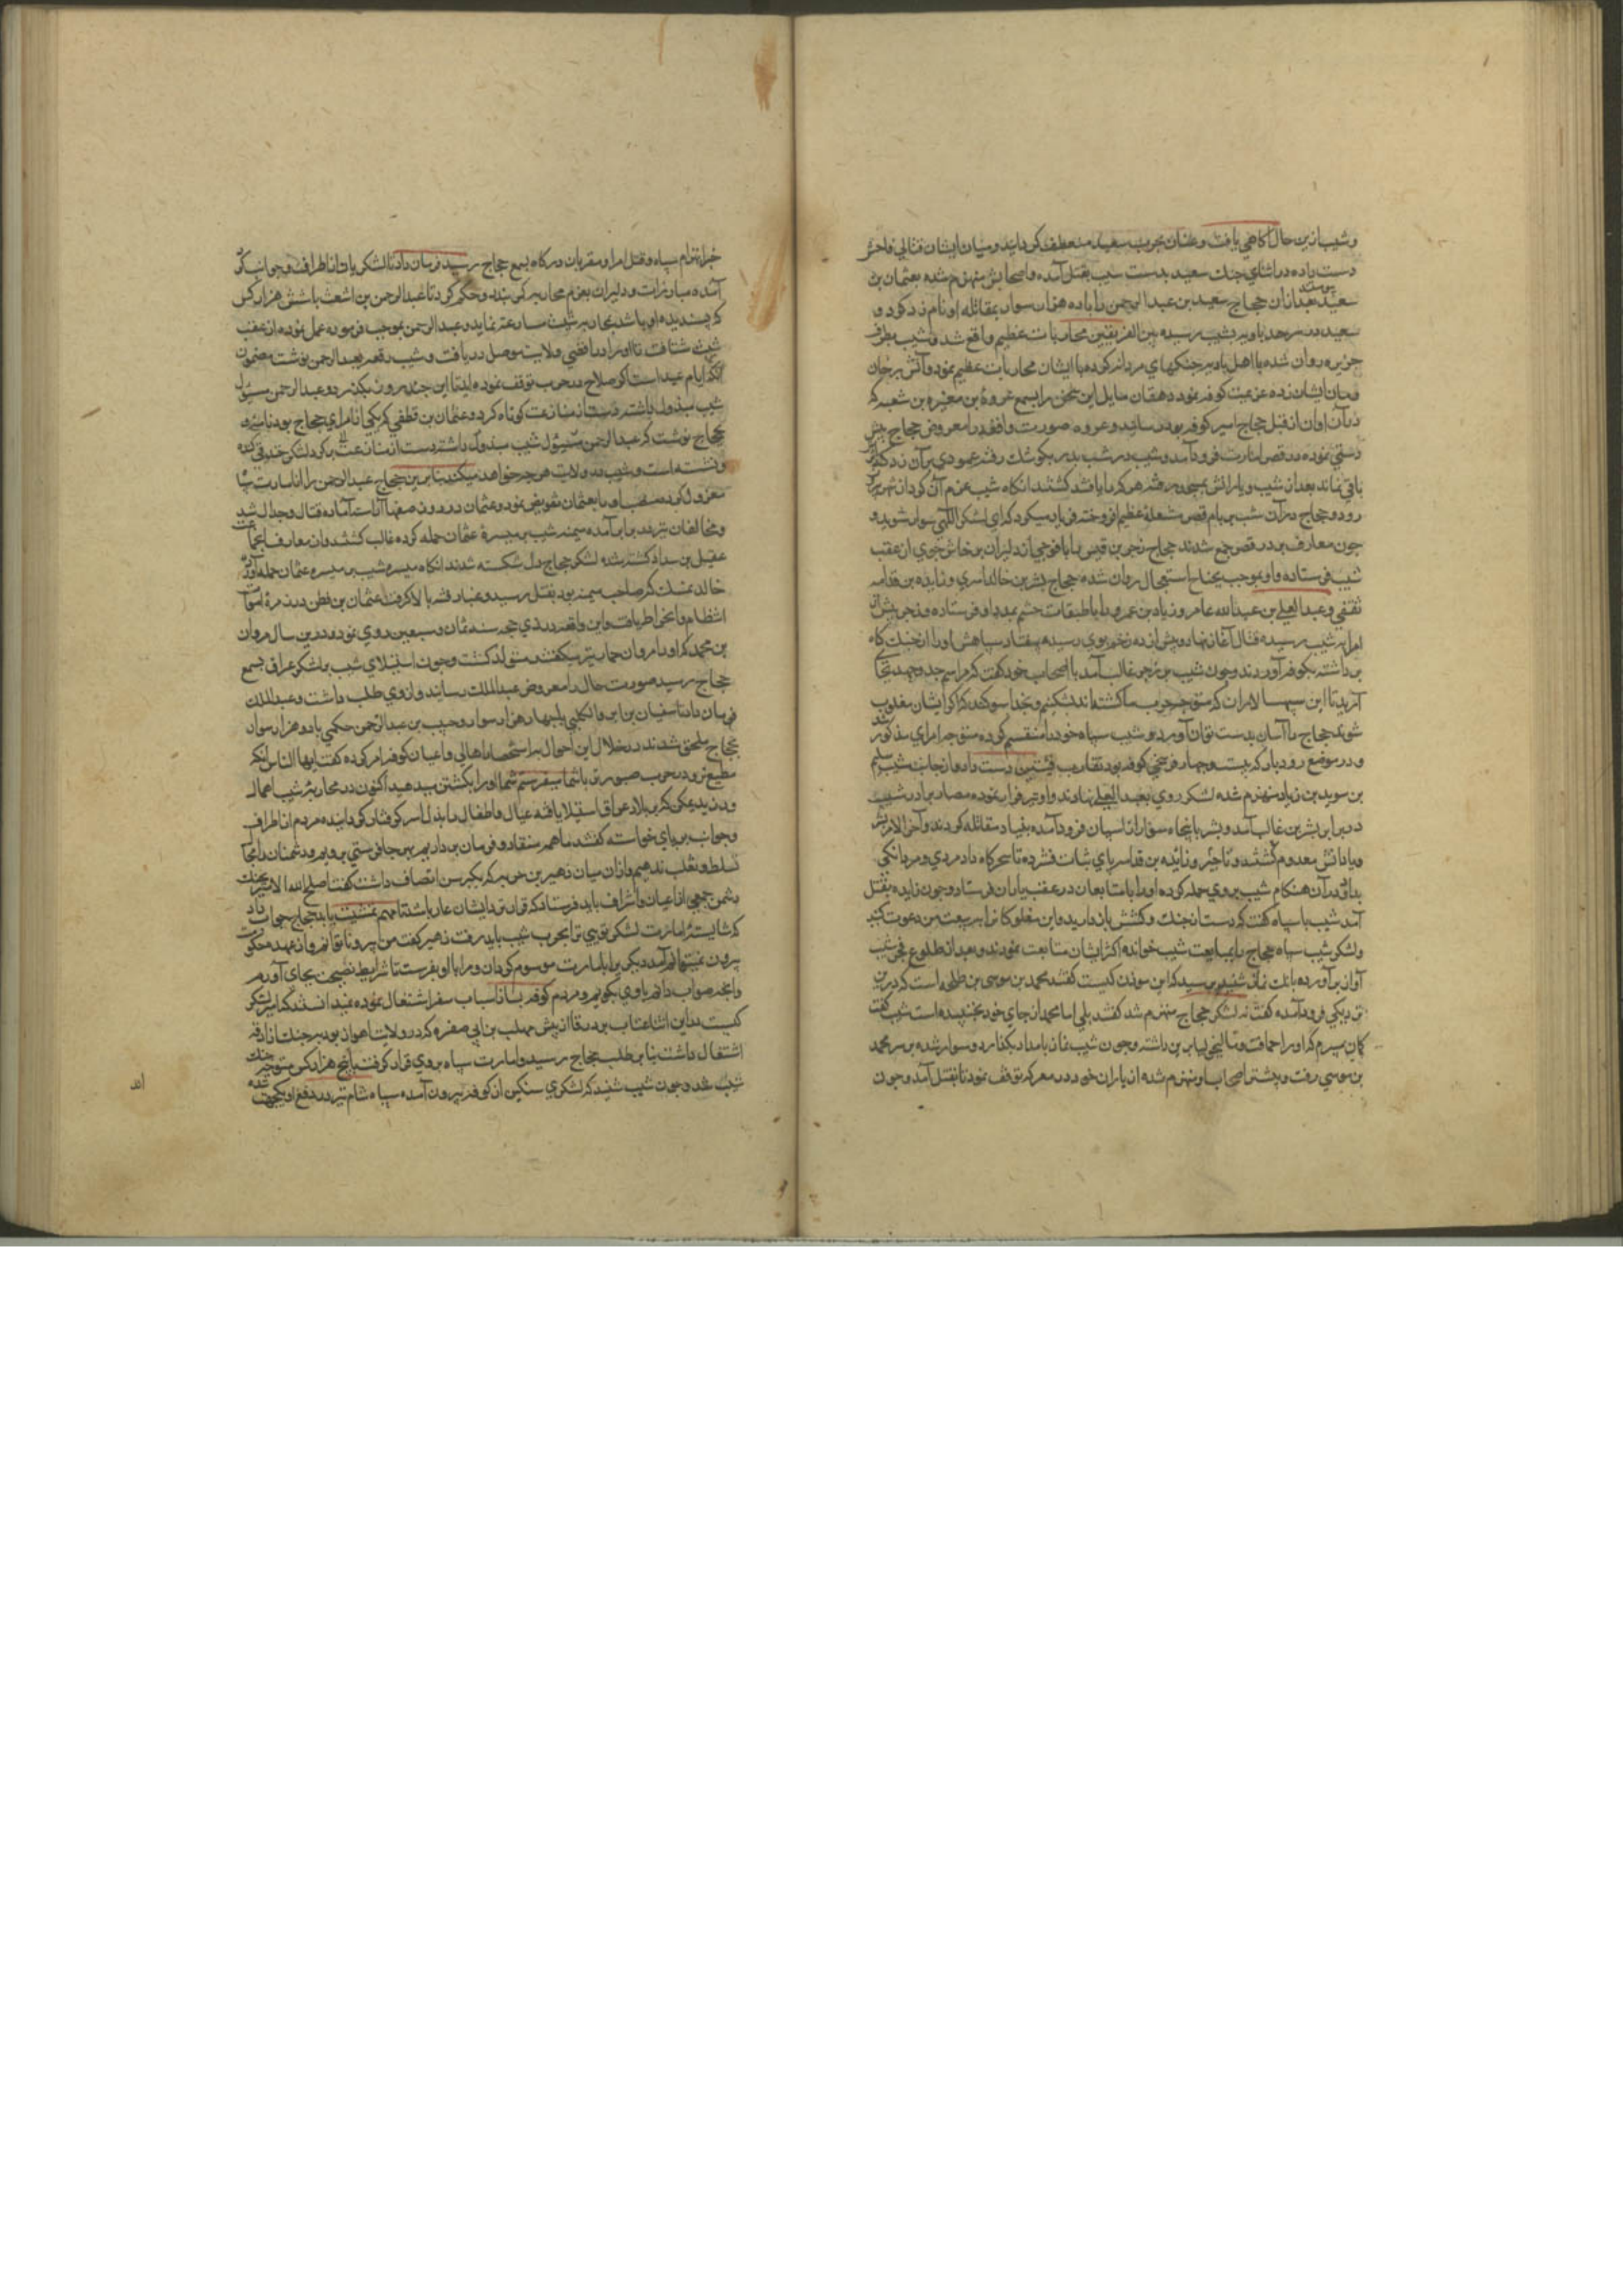 و شبیب ازین حال آگاهی یافت و عنان بحرب سعید منعطف گردانید و میان ایشان قتالی فاحش
دست داده در اثنای جنك سعید بدست شبیب بقتل آمده و اصحابش منهزم شده بعثمان بن
سعید بعد ازان حجاج سعید بن عبد الرحمن را باده هزار سوار بمقاتله او نام زد کرد و
سعید در سرحد باو بر شبیب رسیده بین الفریقین محاربات عظیم واقع شد و شبیب بطرف
جزیره روان شده با اهل بادیه جنکهای مردانه کرده با ایشان محاربات عظیم نمود و آتش در خان
و مان ایشان زده عزیمت کوفه نمود و دهقان این سخن را بسمع عروة بن مغیره بن شعبه که
در آن اوان از قبل حجاج امیر کوفه بود رسانید و عروه صورت واقعه را معروض حجاج پیش
دستی نموده در قصر امارت فرود آمد و شبیب در شب بدر کوشك رفته عمودی بر آن زد که اثر
باقی ماند بعد ازان شبیب و یارانش بمسجد رفته هر کرا یافتند کشتند انکاه شبیب عزم آن کرد از شهر بیرون
رود و حجاج در آن شب بر بام قصر شعلهٔ عظیم افروخته فریاد میکرد که ای لشکر اللهی سوار شوید و
چون معارف بر در قصر جمع شدند حجاج زحر بن قیس را با فوجی از دلیران پرخاش جوی از عقب
شبیب فرستاده و او بموجب استعجال روان شده حجاج بشر بن خالد اسدی و زایده بن قدامه
ثقفی و عبد الاعلی بن عبد الله عامر و زیاد بن عمرو را با طبقات حشم بمدد او فرستاده و زحر پیش از
امرا به شبیب رسیده قتال آغاز نهاد و پس از ده زخم بوی رسیده بیفتاد سپاهش او را از جنك کاه
برداشته بکوفه آوردند و چون شبیب بر زحر غالب آمد با اصحاب خود کفت که مراسم جد و جهد بجا
آرید تا این سپهسالاران که متوجه حرب ما کشته اند بشکنیم و بخدا سوکند که اکر ایشان مغلوب
شوند حجاج را آسان بدست توان آورد و شبیب سپاه خود را منقسم کرده متوجه امرای مذکور شد
و در موضع رودبار که بیست و چهار فرسخی کوفه بود تقارب فئتین دست داد و از جانب شبیب
بن سوید بن زیاد منهزم شده لشکر روی بعبد الاعلی نهادند و او نیز فرار نموده مصاد برادر شبیب
در برابر بشر بن غالب آمد و بشر با پنجاه سوار از اسپان فرود آمده بنیاد مقاتله کردند و آخر الامر بشر
و یارانش معدوم کشتند و زایده بن قدامه پای ثبات فشرده تا سحرکاه داد مردی و مردانکی
بداد و در آن هنکام شبیب بر وی حمله کرده او را با متابعان در عقب یاران فرستاد و چون زایده بقتل
آمد شبیب با سپاه کفت که دست از جنك و کشش باز دارید و این مفلوکانرا به بیعت من دعوت کنید
و لشکر شبیب سپاه حجاج را بمبایعت شبیب خوانده اکثر ایشان متابعت نمودند و بعد از طلوع فجر شبیب
آواز برآورده بانك نماز شنید پرسید که این موذن کیست کفتند محمد بن موسی بن طلحه است که درین
نزدیکی فرود آمده کفت نه لشکر حجاج منهزم شد کفتند بلی اما محمد از جای خود نجنبیده است شبیب کفت
کمان میبرم که او را حماقت و تالیخولیا برین داشته و چون شبیب نماز بامداد بکذارد و سوار شده بر سر محمد
بن موسی رفت و بیشتر اصحاب او منهزم شده از یاران خود در معرکه توقف نمود تا بقتل آمد و چون
خبر انهزام سپاه و قتل امرا و مقربان درکاه بسمع حجاج رسید فرمان داد تا لشکر یاد از اطراف و جوانب کرد
آمده مبارزات و دلیران بعزم محاربه کمر بندند و حکم کرد تا عبد الرحمن بن اشعث با شش هزار کس
که پسندیده او باشد بمحاربه شبیب مسارعت نماید و عبد الرحمن بموجب فرموده عمل نموده از عقب
شبیب شتافت تا او را در اقصی ولایت موصل دریافت و شبیب رقعه بعبد الرحمن نوشت مضمون
آنکه ایام عید است اکر صلاح در حرب توقف نموده آید تا این چند روز بکذرد و عبد الرحمن مسئول
شبیب مبذول داشته دست از منازعت کوتاه کرد و عثمان بن قطن که یکی از امرای حجاج بود نامه
بحجاج نوشت که عبد الرحمن مسئول شبیب مبذول داشته دست از منازعت بر کرد لشکر خندقی کنده
و نشسته است و شبیب در ولایت هر چه خواهد میکند بنا برین حجاج عبد الرحمن را از امارت سپاه
معزول کرده منصب او را بعثمان تفویض نمود و عثمان در روز صفها آراست آماده قتال و جدال شد
و مخالفان نیز در برابر آمده میمنه شبیب بر میسرهٔ عثمان حمله کرده غالب کشتند و از معارف جماعت
عقیل بن شداد کشته شده لشکر حجاج دل شکسته شدند انکاه میسره شبیب بر میسره عثمان حمله آورده
خالد نهیك که صاحب میمنه بود بقتل رسید و غبار فتنه بالا کرفت عثمان بن قطن در زمرهٔ اموات
انتظام و انخراط یافت و این واقعه در ذی حجه سنه ثمان و سبعین روی نمود و درین سال مروان
بن محمد که او را مروان حمار نیز میکفتند متولد کشت و چون استیلای شبیب بر لشکر عراق بسمع
حجاج رسید صورت حال را معروض عبد الملك رسانید و از وی طلب داشت و عبد الملك
فرمان داد تا سفیان بن ابرد الکلبی با چهار هزار سوار و حبیب بن عبد الرحمن حکمی با دو هزار سوار
بحجاج ملحق شدند در خلال این احوال به استحضار اهالی و اعیان کوفه امر کرده کفت ایها الناس لشکر
مطیع نبود در حرب صبور نی باشما میفرستم شما او را بکشتن میدهید اکنون در محاربهٔ شبیب اهمال
ورزید یمکن که بر بلاد عراق استیلا یافته عیال و اطفال را بذل اسر کرفتار کردانیده مردم از اطراف
و جوانب بر پای خواسته کفتند ما همه منقاد و فرمان برداریم بهر جا فرستی برویم و دشمنان را بجا
تسلط و تغلب ندهیم و ازان میان زهیر بن حویه که بکبر سن اتصاف داشت کفت اصلح الله الامیر بجنك
دشمن جمعی از اعیان و اشراف باید فرستاد که فرار نزد ایشان عار باشد تا مهم تمشیت یابد حجاج جواب داد
که شایستهٔ امارت لشکر توی ترا بحرب شبیب باید رفت زهیر کفت من پیر و ناتوانم و از عهده حکومت
بیرون نمیتوانم آمد دیکری را بامارت موسوم کردان و مرا با او بفرست تا شرایط نصیحت بجای آورم
و آنچه صواب دانم باوی بکویم و مردم کوفه بساز اسباب سفر اشتغال نموده نمیدانستند که امیر لشکر
کیست در این اثنا عتاب بن ورقا از پیش مهلب بن ابی صفره که در ولایت اهواز بود بر جنك ازارقه
اشتغال داشت بنا بر طلب حجاج رسید و امارت سپاه بروی قرار کرفت با پنج هزار کس متوجه جنك
شبیب شد و چون شبیب شنید که لشکری سنکین از کوفه بیرون آمده سپاه شام نیز در دفع او یکجهت شده
اند